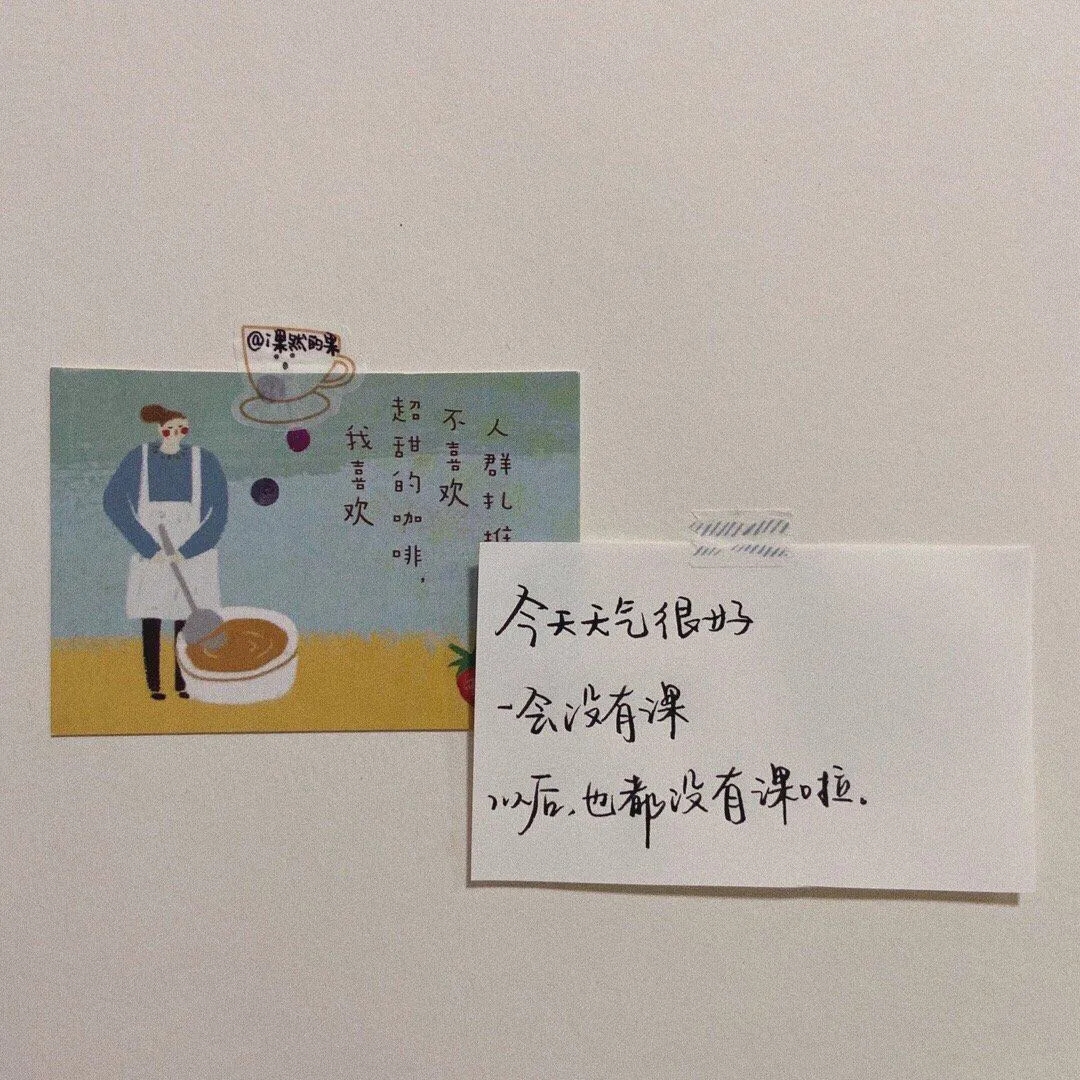 @i果然的果
我喜欢
超甜的咖啡,
不喜欢
人群扎
今天天气很好
一会没有课
以后,也都没有课啦.